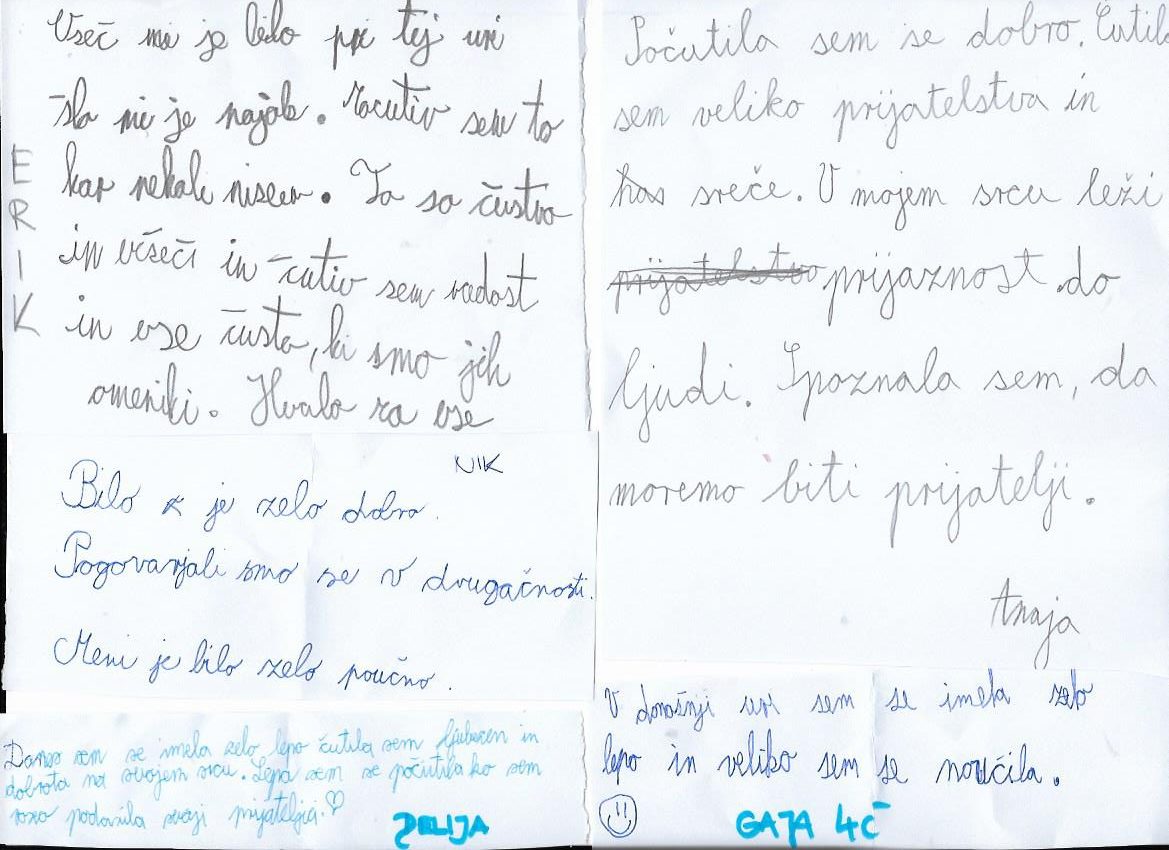 ERIK
Všeč mi je bilo pri tej uri
šlo mi je najob. začutiv sem to
kar nekoli nisem. To so čustva
in všeči in čutiv sem radost
in vse čusta, ki smo jih
omeniki. Hvalo za vse
NIK
Bilo je zelo dobro.
Pogovarjali smo se v drugačnosti.
Meni je bilo zelo poučno.
Danes sem se imela zelo lepo čutila sem ljubezen in
dobrota na svojem srcu. Lepa sem se počutila ko sem
rožo podarila svoji prijateljici.♡
DELIJA
Počutila sem se dobro. Čutila
sem veliko prijatelstva in
sreče. V mojem srcu leži
prijatelstvo prijaznost do
ljudi. Spoznala sem, da
moremo biti prijatelji.
Anaja
V današnji uri sem se imela zelo
lepo in veliko sem se naučila.
GAJA 4Č